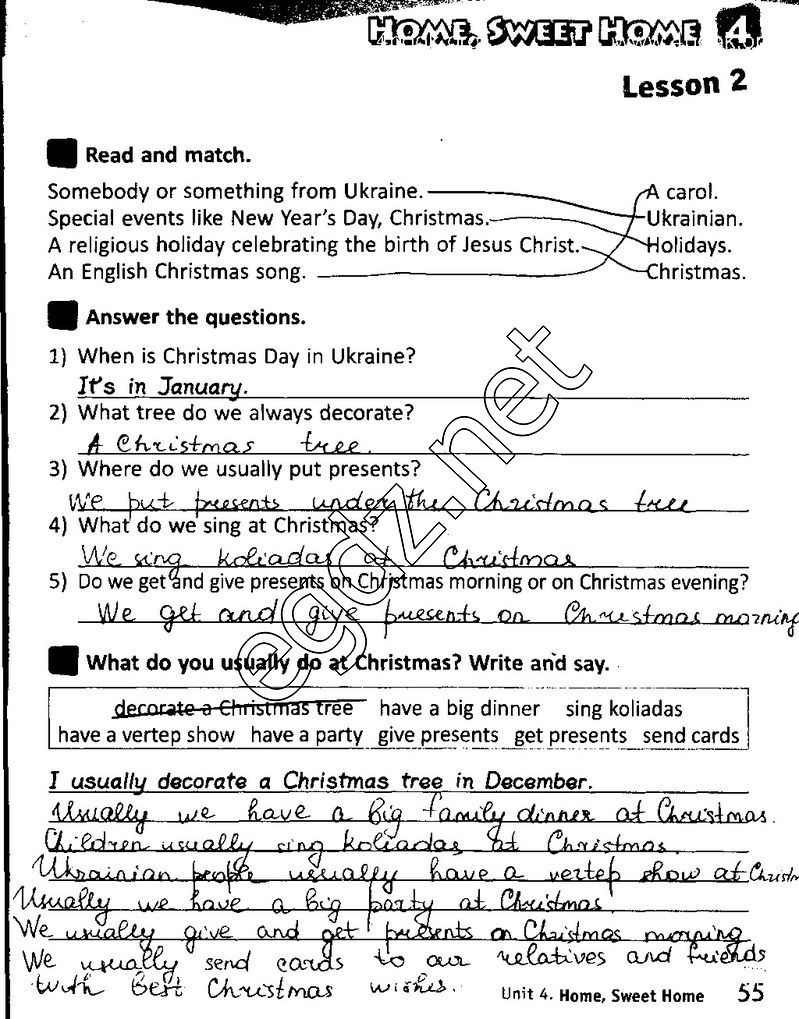 HOME, SWEET HOME 4
Lesson 2
Read and match.
Somebody or something from Ukraine. A carol.
Special events like New Year's Day, Christmas. Ukrainian.
A religious holiday celebrating the birth of Jesus Christ. Holidays.
An English Christmas song. Christmas.
Answer the questions.
1) When is Christmas Day in Ukraine?
It's in January.
2) What tree do we always decorate?
A Christmas tree.
3) Where do we usually put presents?
We put presents under the Christmas tree
4) What do we sing at Christmas?
We sing koliadas at Christmas
5) Do we get and give presents on Christmas morning or on Christmas evening?
We get and give presents on Christmas morning
egdz.net
What do you usually do at Christmas? Write and say.
decorate a Christmas tree have a big dinner sing koliadas
have a vertep show have a party give presents get presents send cards
I usually decorate a Christmas tree in December.
Usually we have a big family dinner at Christmas.
Children usually sing koliadas at Christmas.
Ukrainian people usually have a vertep show at Christm
Usually we have a big party at Christmas.
We usually give and get presents on Christmas morning
We usually send cards to our relatives and friends
with Best Christmas wishes.
Unit 4. Home, Sweet Home 55